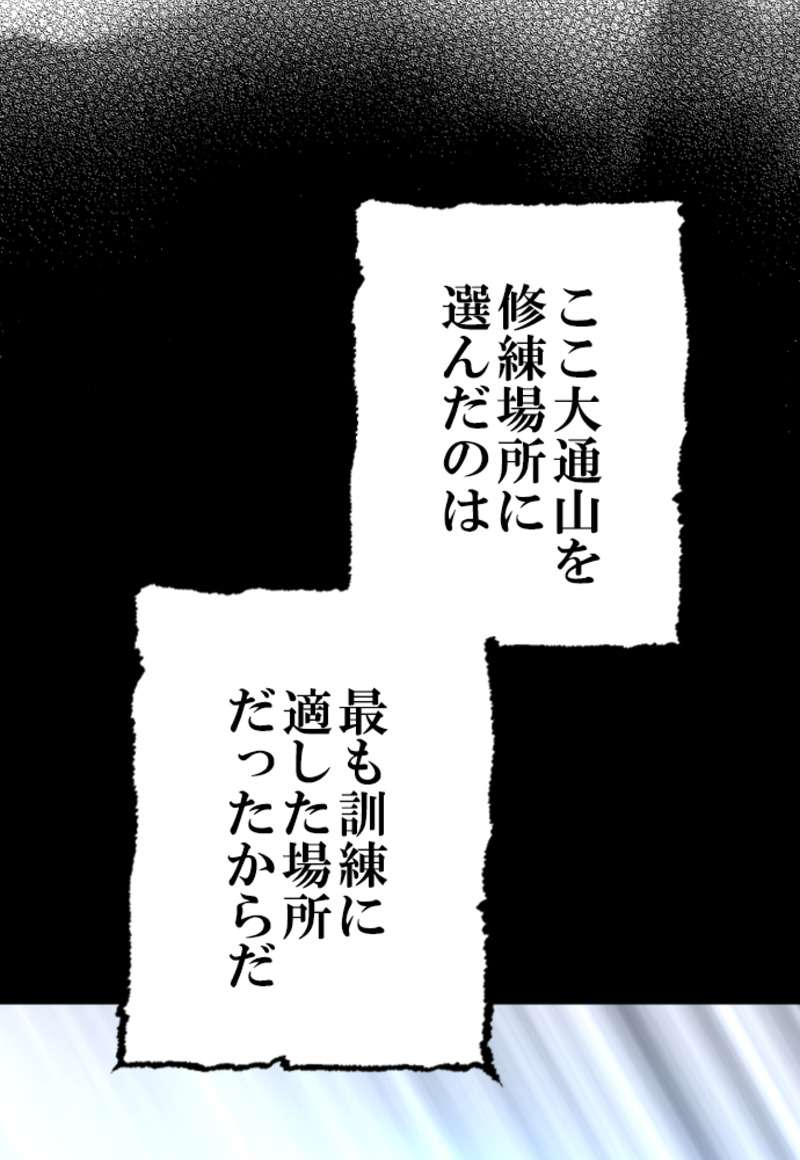 ここ大通山を
修練場所に
選んだのは
最も訓練に
適した場所
だったからだ